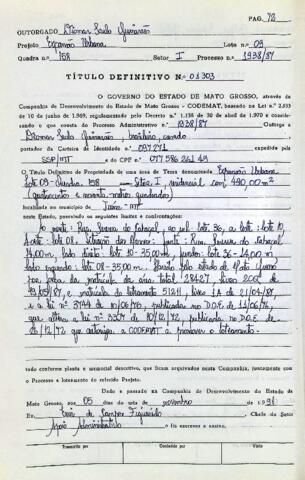 PAG. 72
OUTORGADO Dromar Paulo Guimarães
Projeto Expansão Urbana Lote n.o 09
Quadra n.o 158 Setor I Processo n.o 1938/87
TÍTULO DEFINITIVO N.o 01303
O GOVERNO DO ESTADO DE MATO GROSSO, através da
Companhia de Desenvolvimento do Estado de Mato Grosso - CODEMAT, baseado na Lei n.o
10 de junho de 1969, regulamentado pelo Decreto n.o 1.138 de 30 de abril de 1970 e consideran-
do o que consta do Processo Administrativo n.o 1938/87 Outorga a
Paulo Guimarães, brasileiro, casado
portador da Carteira de Identidade n.o 097271 expedida pela
SSP/MT e do CPF n.o 077 586 261 49
O Título Definitivo de Propriedade de uma área de Terra denominada Expansão Urbana
Lote 09 - Quadra 158 - Setor I, residencial com 490,00 m²
(quatrocentos e noventa metros quadrados)
localizada no município de - MT
neste Estado, possuindo os seguintes limites e confrontações:
ao norte: Rua, ao sul: lote 36, a leste: lote 10,
lote 08. frente: Rua
14,00m, lado direito: lote 10 - 35,00m fundos: lote 36 - 14,00 m
lado esquerdo: lote 08 - 35,00m.
matrícula da área total 28427, livro
19/05/87, e matrícula do loteamento 51211, livro 1A de 21/04/87,
e a lei nº 3744 de 10/06/76, publicada no D.O.E de 11/06/76
que altera a lei nº 3307 de 10/12/72, publicada no D.O.E de
26/12/72 que autoriza a CODEMAT a promover o loteamento.
tudo conforme planta e memorial descritivo, que ficam arquivados nesta Companhia, juntamente com
o Processo e loteamento do referido Projeto.
Dado e passado na Companhia de Desenvolvimento do Estado de
Mato Grosso, aos 05 dias do mês de novembro de 1991
Eu, de Campos Figueiredo Chefe do Setor
Apoio Administrativo o fiz escrever e assino.
Transcrito por Conferido por Visto